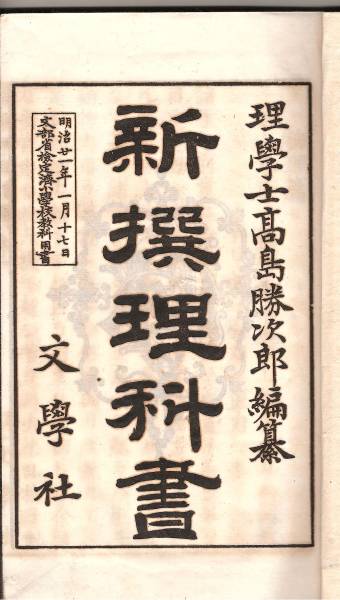 理學士髙島勝次郎編纂
新撰理科書
明治廿一年一月十七日
文部省檢定濟小學校教科用書
文學社